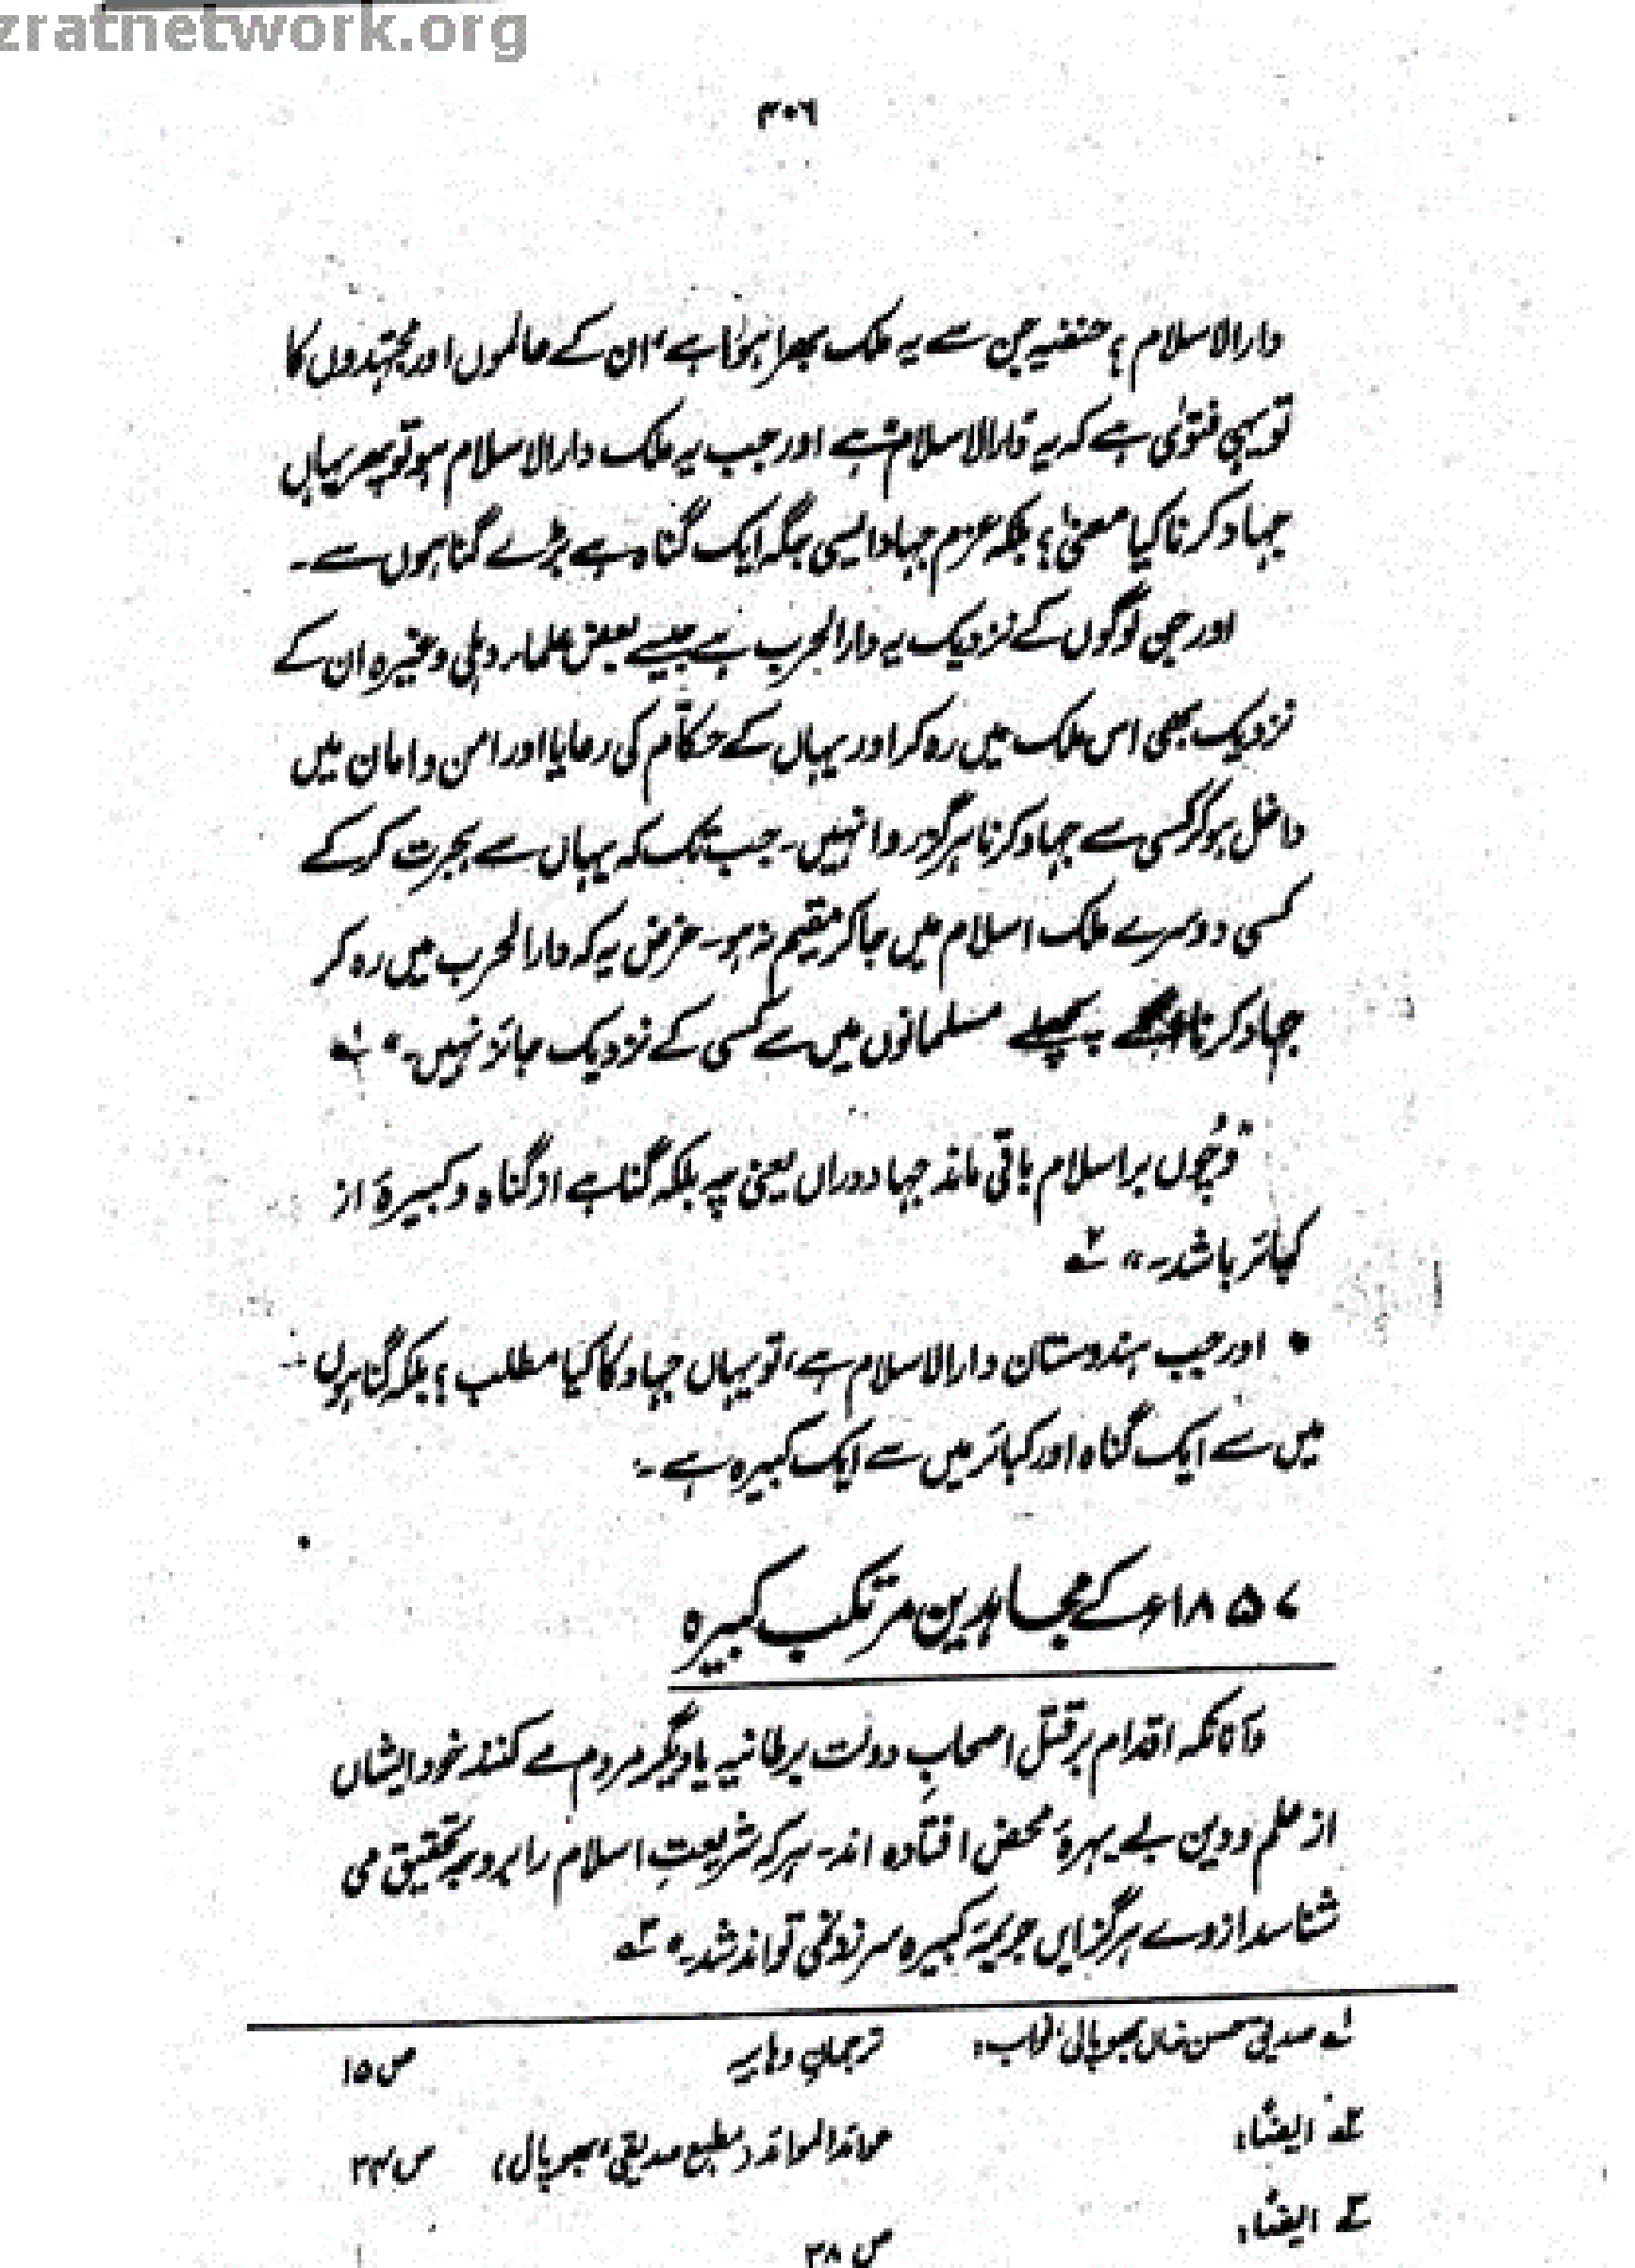 zratnetwork.org
۳۰۶
دارالاسلام؟ حنفیہ جن سے یہ ملک بھرا ہوا ہے، ان کے عالموں اور مجتہدوں کا
تو یہی فتویٰ ہے کہ یہ دارالاسلام ہے اور جب یہ ملک دارالاسلام ہو تو پھر یہاں
جہاد کرنا کیا معنیٰ؟ بلکہ عزم جہاد ایسی جگہ ایک گناہ ہے بڑے گناہوں سے۔
اور جن لوگوں کے نزدیک یہ دارالحرب ہے جیسے بعض علماء دہلی وغیرہ ان کے
نزدیک بھی اس ملک میں رہ کر اور یہاں کے حکّام کی رعایا اور امن و امان میں
داخل ہو کر کسی سے جہاد کرنا ہرگز روا نہیں۔ جب تک کہ یہاں سے ہجرت کر کے
کسی دوسرے ملک اسلام میں جا کر مقیم نہ ہو۔ غرض یہ کہ دارالحرب میں رہ کر
جہاد کرنا اگلے پچھلے مسلمانوں میں سے کسی کے نزدیک جائز نہیں۔" ۱؎
"وچوں بر اسلام باقی ماند جہاد دراں یعنی چہ بلکہ گناہے از گناہ و کبیرۂ از
کبائر باشد۔" ۲؎
• اور جب ہندوستان دارالاسلام ہے، تو یہاں جہاد کا کیا مطلب؟ بلکہ گناہوں
میں سے ایک گناہ اور کبائر میں سے ایک کبیرہ ہے۔
۱۸۵۷ء کے مجاہدین مرتکب کبیرہ
وآنانکہ اقدام بر قتل اصحابِ دولت برطانیہ یا دیگر مردم مے کنند خود ایشاں
از علم و دین بے بہرۂ محض افتادہ اند۔ ہر کہ شریعتِ اسلام را بر وجہ تحقیق می
شناسد از وے ہرگز ایں جریمۂ کبیرہ سر زد نمی تواند شد۔" ۳؎
۱؎ صدیق حسن خاں بھوپالی نواب: ترجمانِ وہابیہ ص ۱۵
۲؎ ایضاً: عوائد العوائد (مطبع صدیقی، بھوپال) ص ۳۴
۳؎ ایضاً: ص ۳۸